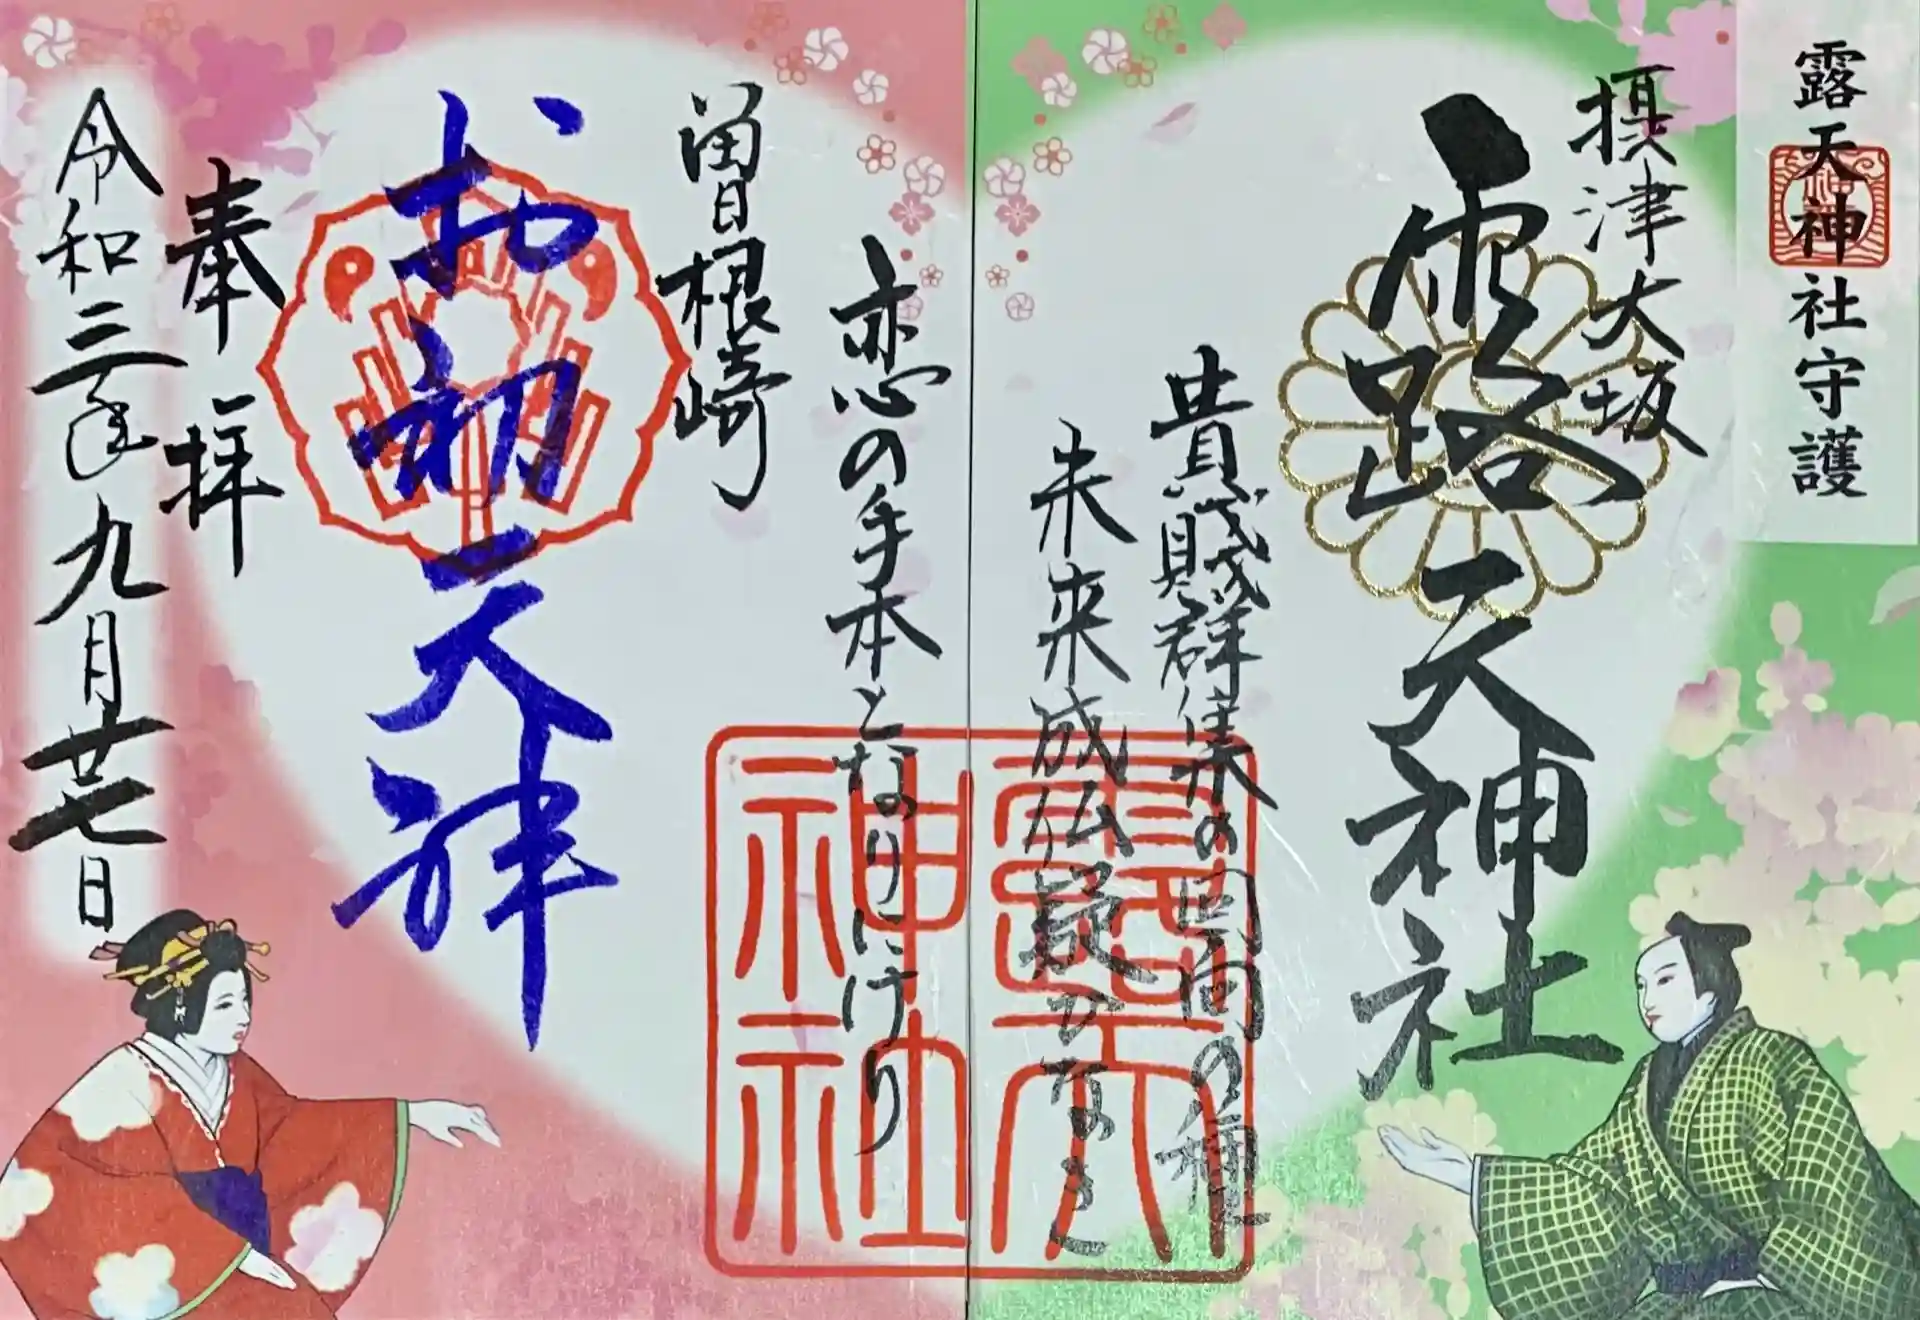 露天神社守護
摂津大坂
露天神社
貴賎群集の回向の種
未来成仏疑ひなき
恋の手本となりにけり
曽根崎
お初天神
奉拝
令和三年九月廿七日
露天
神社